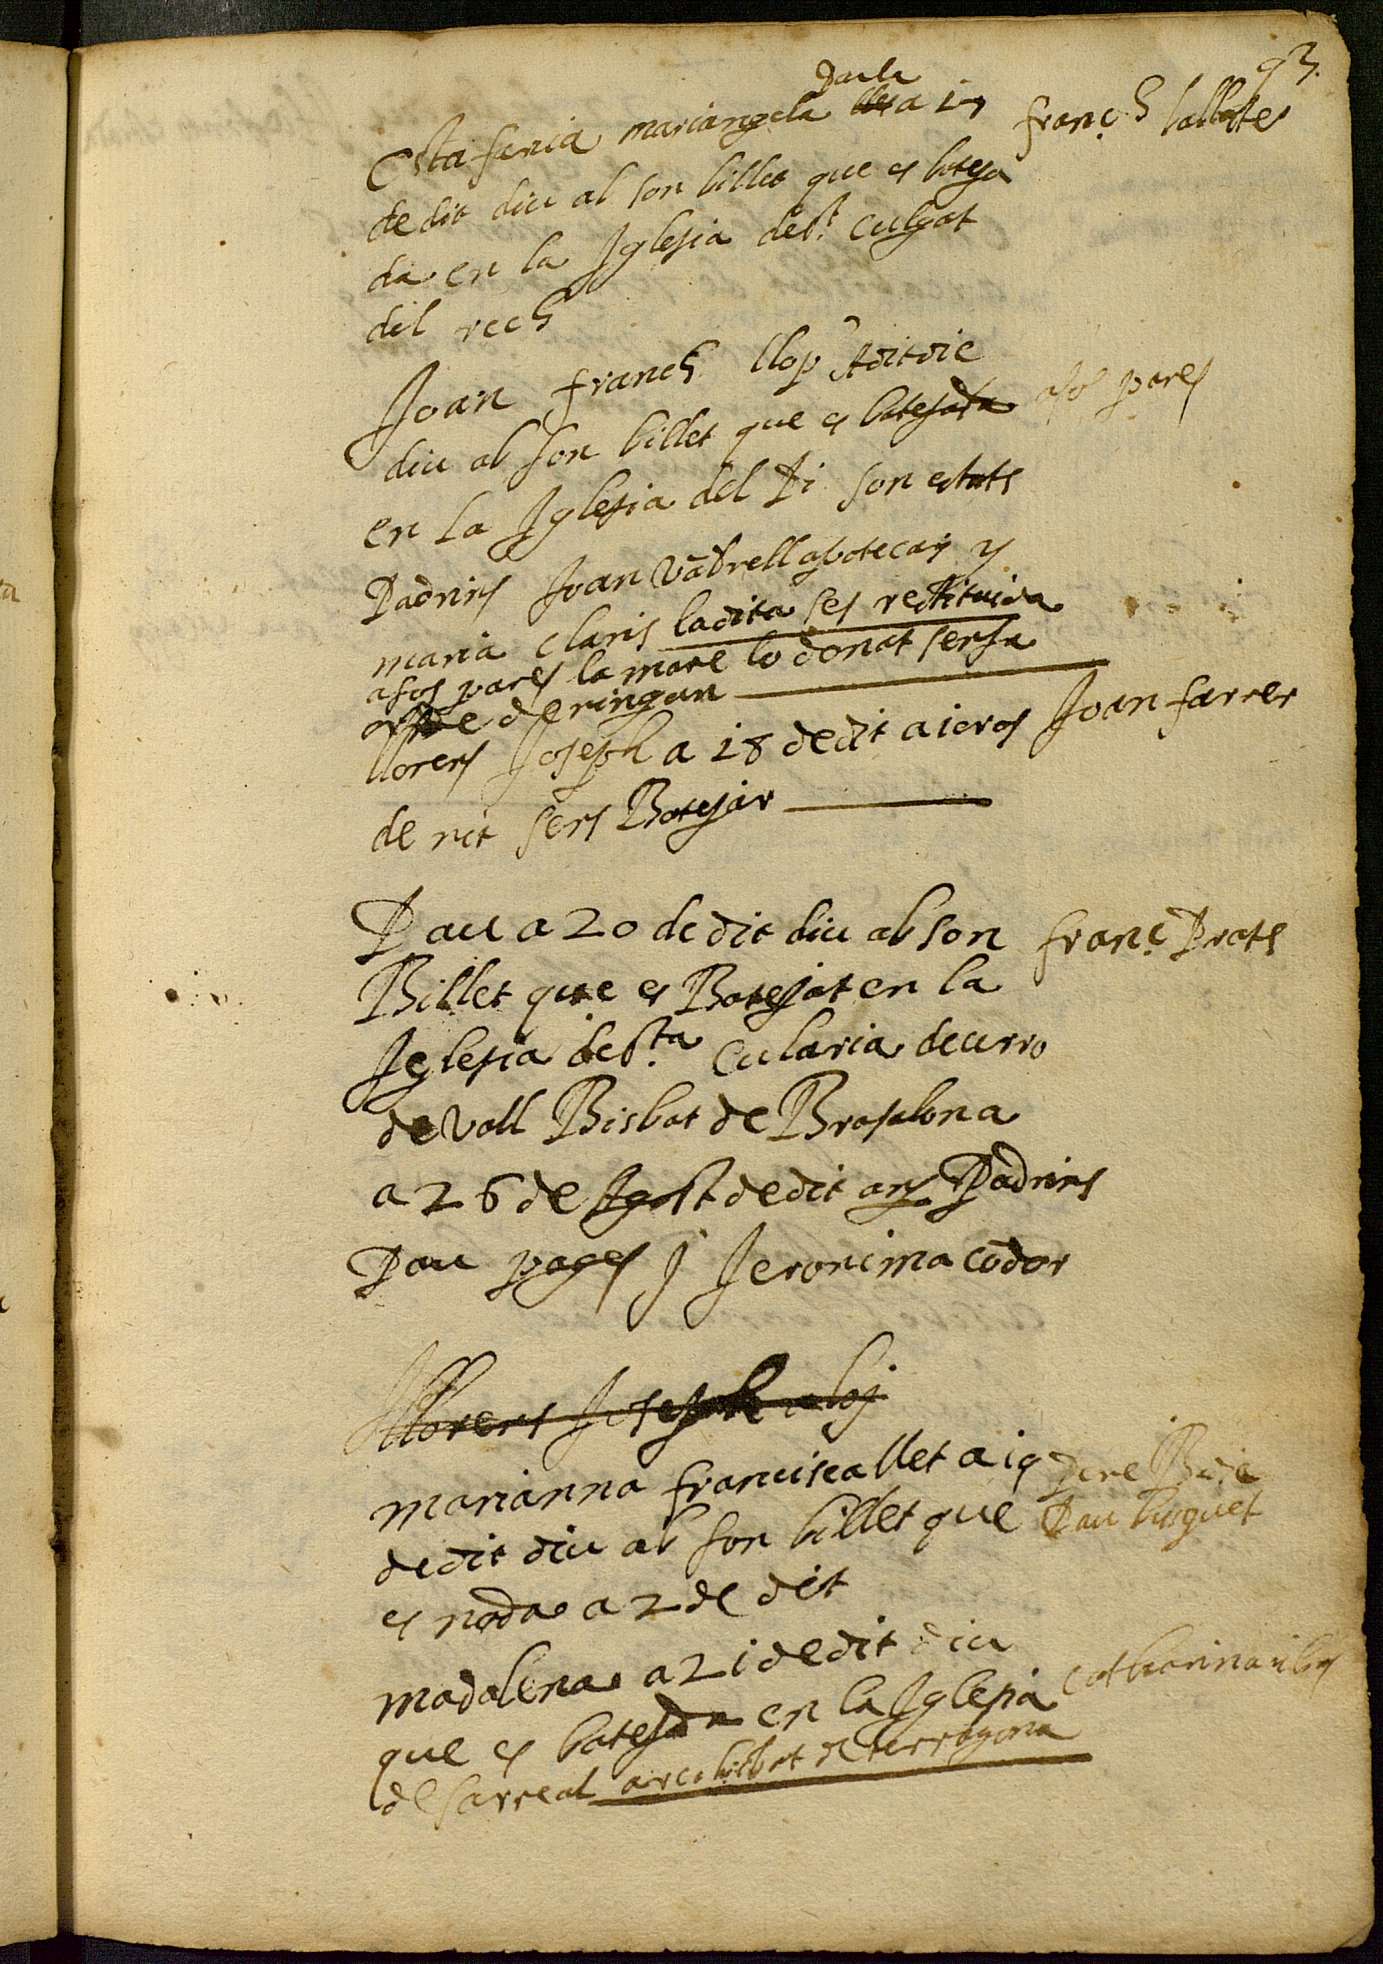 93.
Estafenia mariangela Paula a 17 franc.h ballester
de dit diu ab son billet que es bateja
da en la Iglesia de St. Culgat
del rech
Joan franch llop Adit die
diu ab son billet que es batejada a sos pares
en la Iglesia del Pi son estats
Padrins Joan Vadrell apotecari y
maria claris la dita ses restituida
a sos pares la mare lo donat sensa
orde de ningun
llorens Joseph a 18 de dit a icros Joan farrer
de nit sens Batejar
Pau a 20 de dit diu ab son franc. Prats
Billet que es Batejat en la
Iglesia de Sta. Cularia de curro
de Vall Bisbat de Brasalona
a 26 de Agost de dit any Padrins
Pau pages y Jeronima codor
llorens Joseph aloy
marianna francisca llet a 19 Pere Boie
de dit diu ab son billet que Pau busquet
es nada a 2 de dit
madalena a 21 de dit diu
que es batejada en la Iglesia Catharina ribes
de Sarreal arcebisbat de terragona